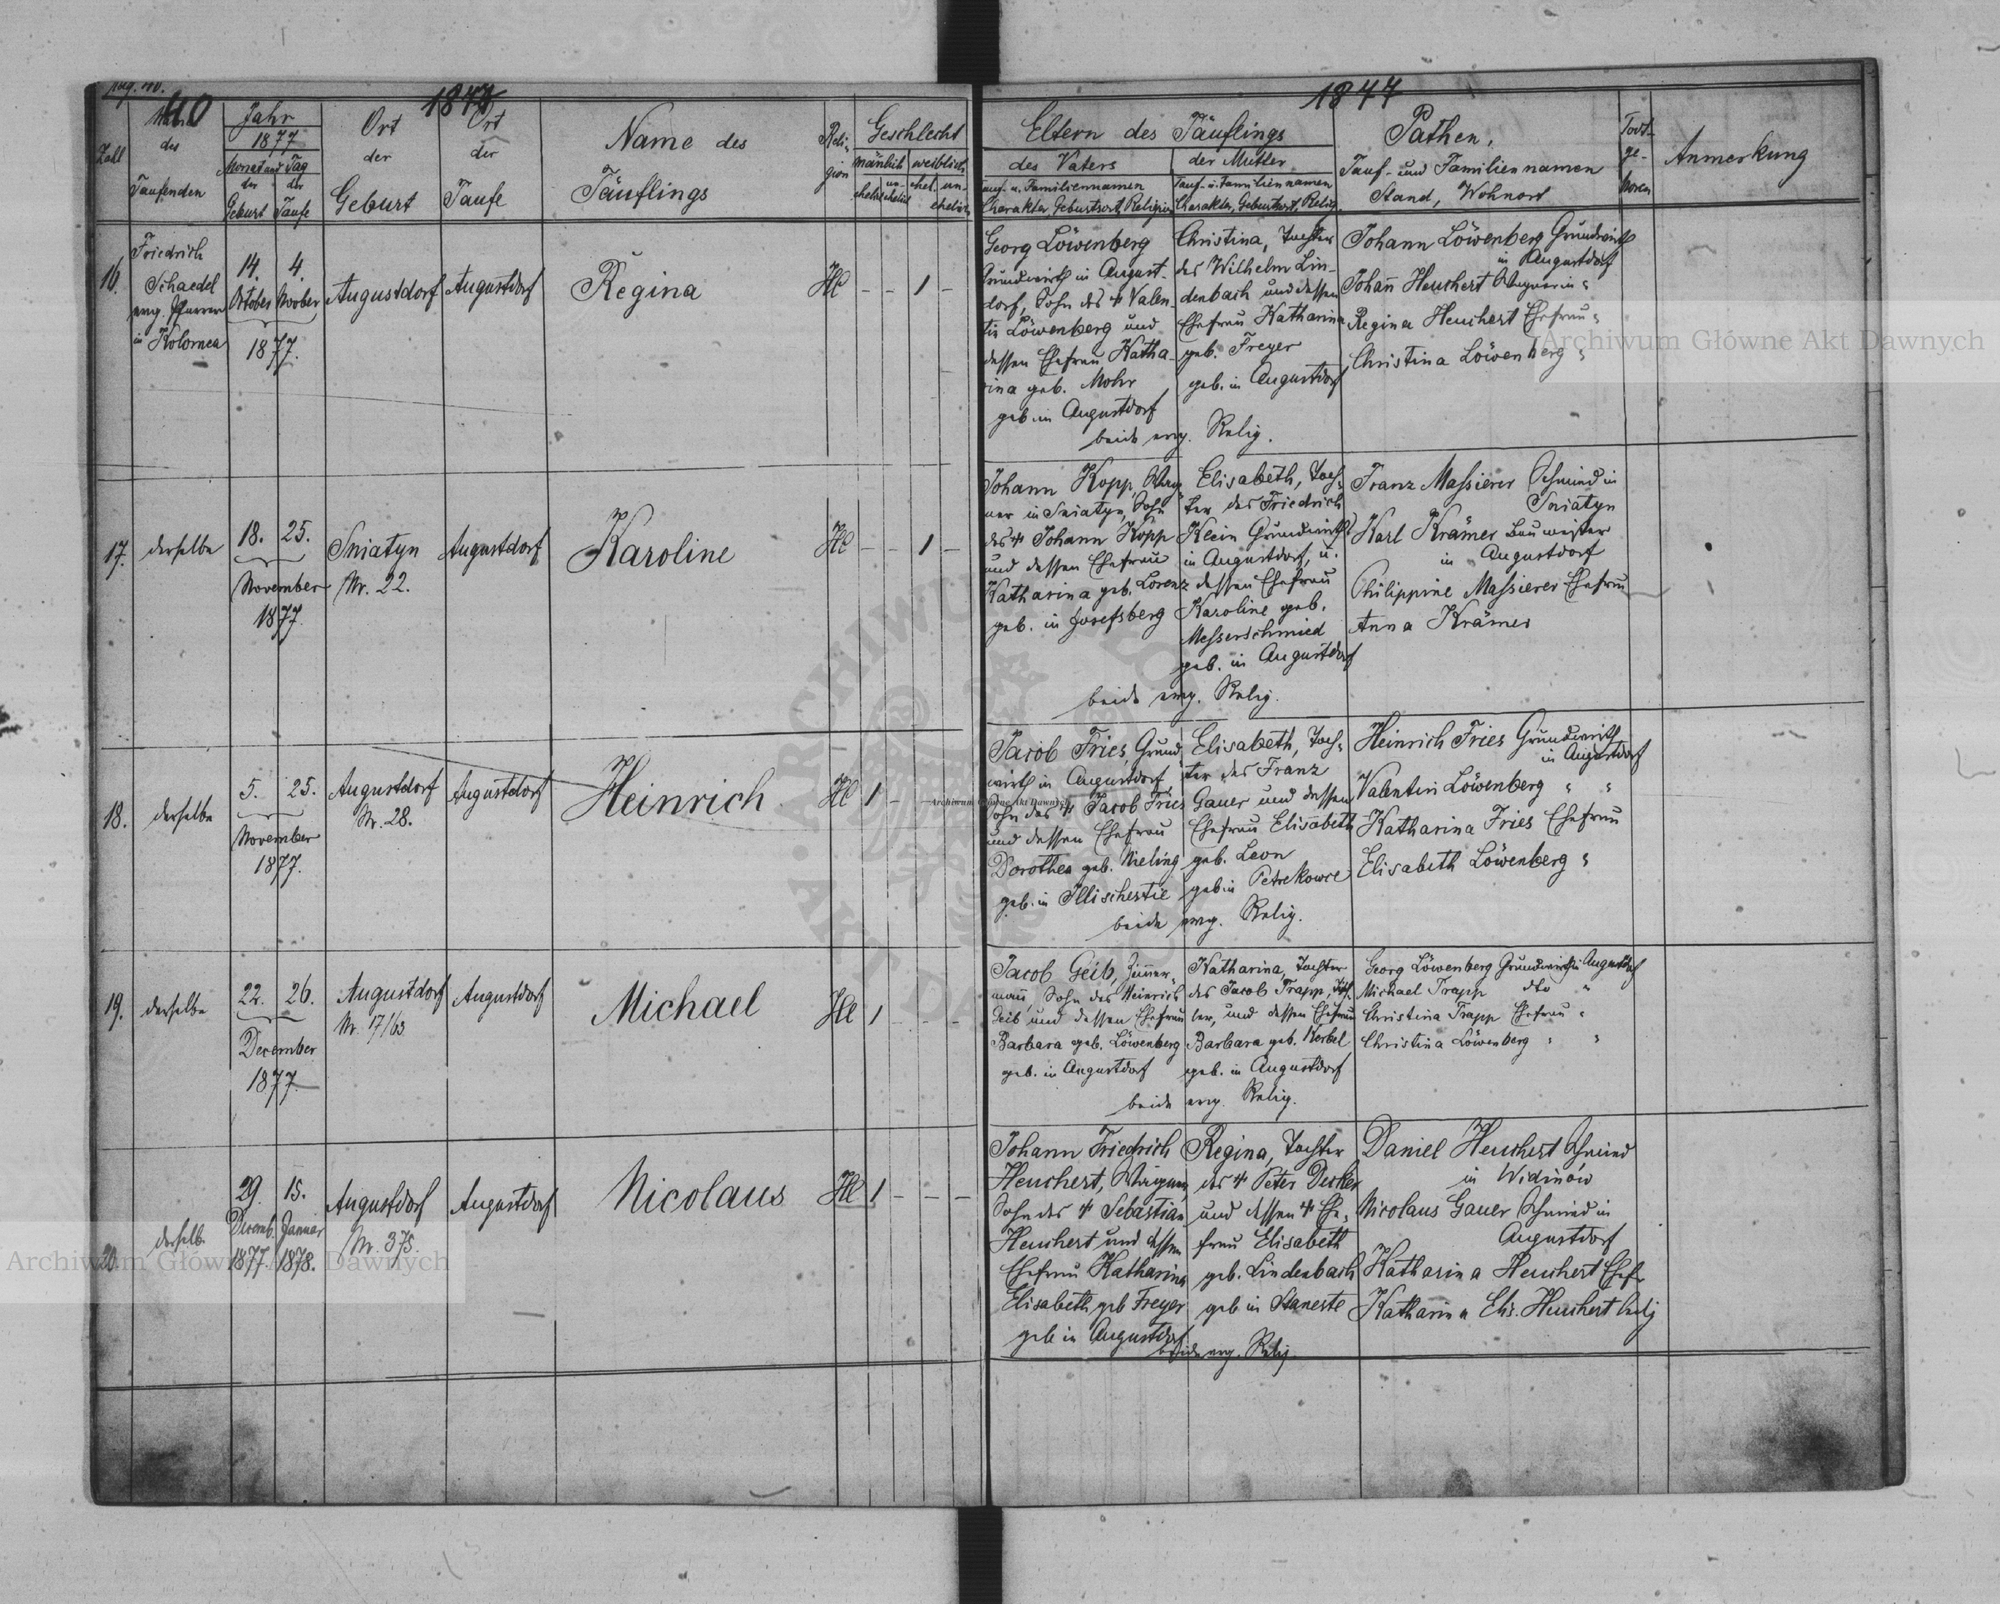 pag. 40.
40
1877
Zahl
Name
des
Taufenden
Jahr
1877
Monat und Tag
der
Geburt
der
Taufe
Ort
der
Geburt
Ort
der
Taufe
Name des
Täuflings
Reli-
gion
Geschlecht
mänlich
weiblich
ehelich
un-
ehelich
ehel.
un-
ehelich
16.
Friedrich
Schaedel
evg. Pfarrer
in Kolomea
14. 4.
October Novber
1877.
Augustdorf
Augustdorf
Regina
Hl
- - 1 -
17.
derselbe
18. 25.
November
1877.
Sniatyn
Nr. 22.
Augustdorf
Karoline
Hl
- - 1 -
18.
derselbe
5. 25.
November
1877.
Augustdorf
Nr. 28.
Augustdorf
Heinrich
Hl
1 - -
19.
derselbe
22. 26.
December
1877.
Augustdorf
Nr. 17/63
Augustdorf
Michael
Hl
1 - - -
20.
derselbe
29. 15.
Decemb. Januar
1877. 1878.
Augustdorf
Nr. 375.
Augustdorf
Nicolaus
Hl
1 - - -
1877
Eltern des Täuflings
des Vaters
Tauf- u. Familiennamen
Charakter, Geburtsort, Religion
der Mutter
Tauf- u. Familiennamen
Charakter, Geburtsort, Relig.
Pathen,
Tauf- und Familiennamen
Stand, Wohnort
Todt-
ge-
boren
Anmerkung
Georg Löwenberg
Grundwirth in August-
dorf, Sohn des + Valen-
tin Löwenberg und
dessen Ehefrau Katha-
rina geb. Mohr
geb. in Augustdorf
Christina, Tochter
des Wilhelm Lin-
denbach und dessen
Ehefrau Katharina
geb. Freyer
geb. in Augustdorf
beide evg. Relig.
Johann Löwenberg Grundwirth
in Augustdorf
Johann Heuchert Wagner in "
Regina Heuchert Ehefrau "
Christina Löwenberg "
Johann Kopp, Wag-
ner in Sniatyn, Sohn
des + Johann Kopp
und dessen Ehefrau
Katharina geb. Lorenz
geb. in Josefsberg
Elisabeth, Toch-
ter des Friedrich
Klein Grundwirth
in Augustdorf, u.
dessen Ehefrau
Karoline geb.
Messerschmied
geb. in Augustdorf
beide evg. Relig.
Franz Massierer Schmied in
Sniatyn
Karl Krämer Baumeister
in Augustdorf
Philippine Massierer Ehefrau
Anna Krämer
Jacob Fries, Grund-
wirth in Augustdorf
Sohn des + Jacob Fries
und dessen Ehefrau
Dorothea geb. Nieling
geb. in Illischestie
Elisabeth, Toch-
ter des Franz
Gauer und dessen
Ehefrau Elisabeth
geb. Leon
geb. in Petrekowce
beide evg. Relig.
Heinrich Fries Grundwirth
in Augustdorf
Valentin Löwenberg " "
Katharina Fries Ehefrau
Elisabeth Löwenberg "
Jacob Geib, Zimmer-
mann, Sohn des Heinrich
Geib, und dessen Ehefrau
Barbara geb. Löwenberg
geb. in Augustdorf
Katharina, Tochter
des Jacob Trapp,
ler, und dessen Ehefrau
Barbara geb. Kerbel
geb. in Augustdorf
beide evg. Relig.
Georg Löwenberg Grundwirth in Augustdorf
Michael Trapp dto "
Christina Trapp Ehefrau "
Christina Löwenberg " "
Johann Friedrich
Heuchert, Wagner,
Sohn des + Sebastian
Heuchert und dessen
Ehefrau Katharina
Elisabeth geb. Freyer
geb. in Augustdorf
Regina, Tochter
des + Peter Decker
und dessen + Ehe-
frau Elisabeth
geb. Lindenbach
geb. in Staneste
beide evg. Relig.
Daniel Heuchert Schmied
in Widinów
Nicolaus Gauer Schmied in
Augustdorf
Katharina Heuchert Ehefr
Katharina Elis. Heuchert ledig
Archiwum Główne Akt Dawnych
Archiwum Główne Akt Dawnych
Archiwum Główne Akt Dawnych